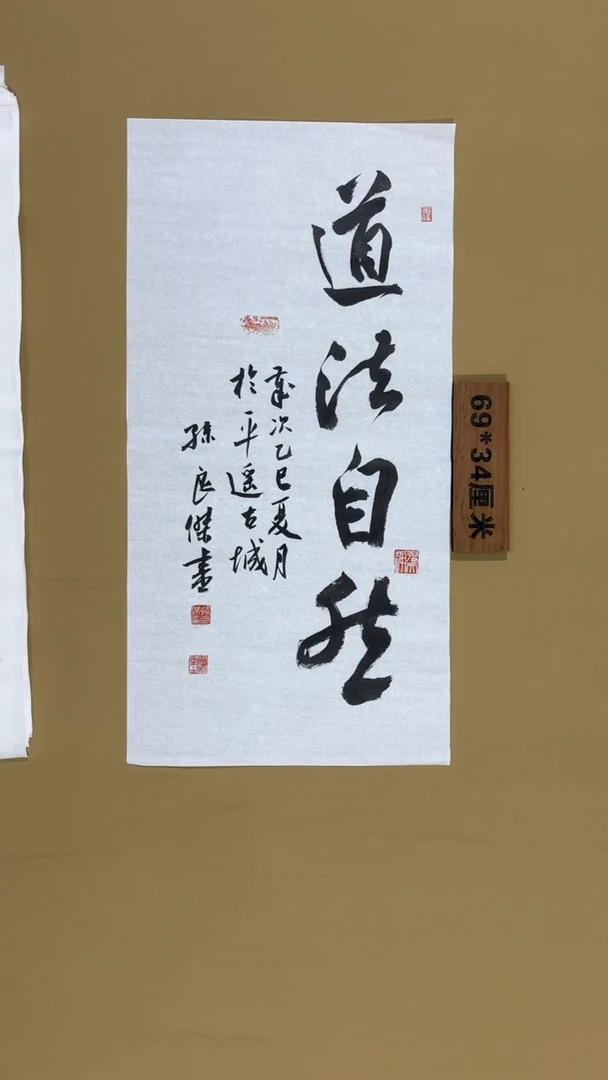 道法自然
歲次乙巳夏月
於平遥古城
孫良傑書
69*34厘米